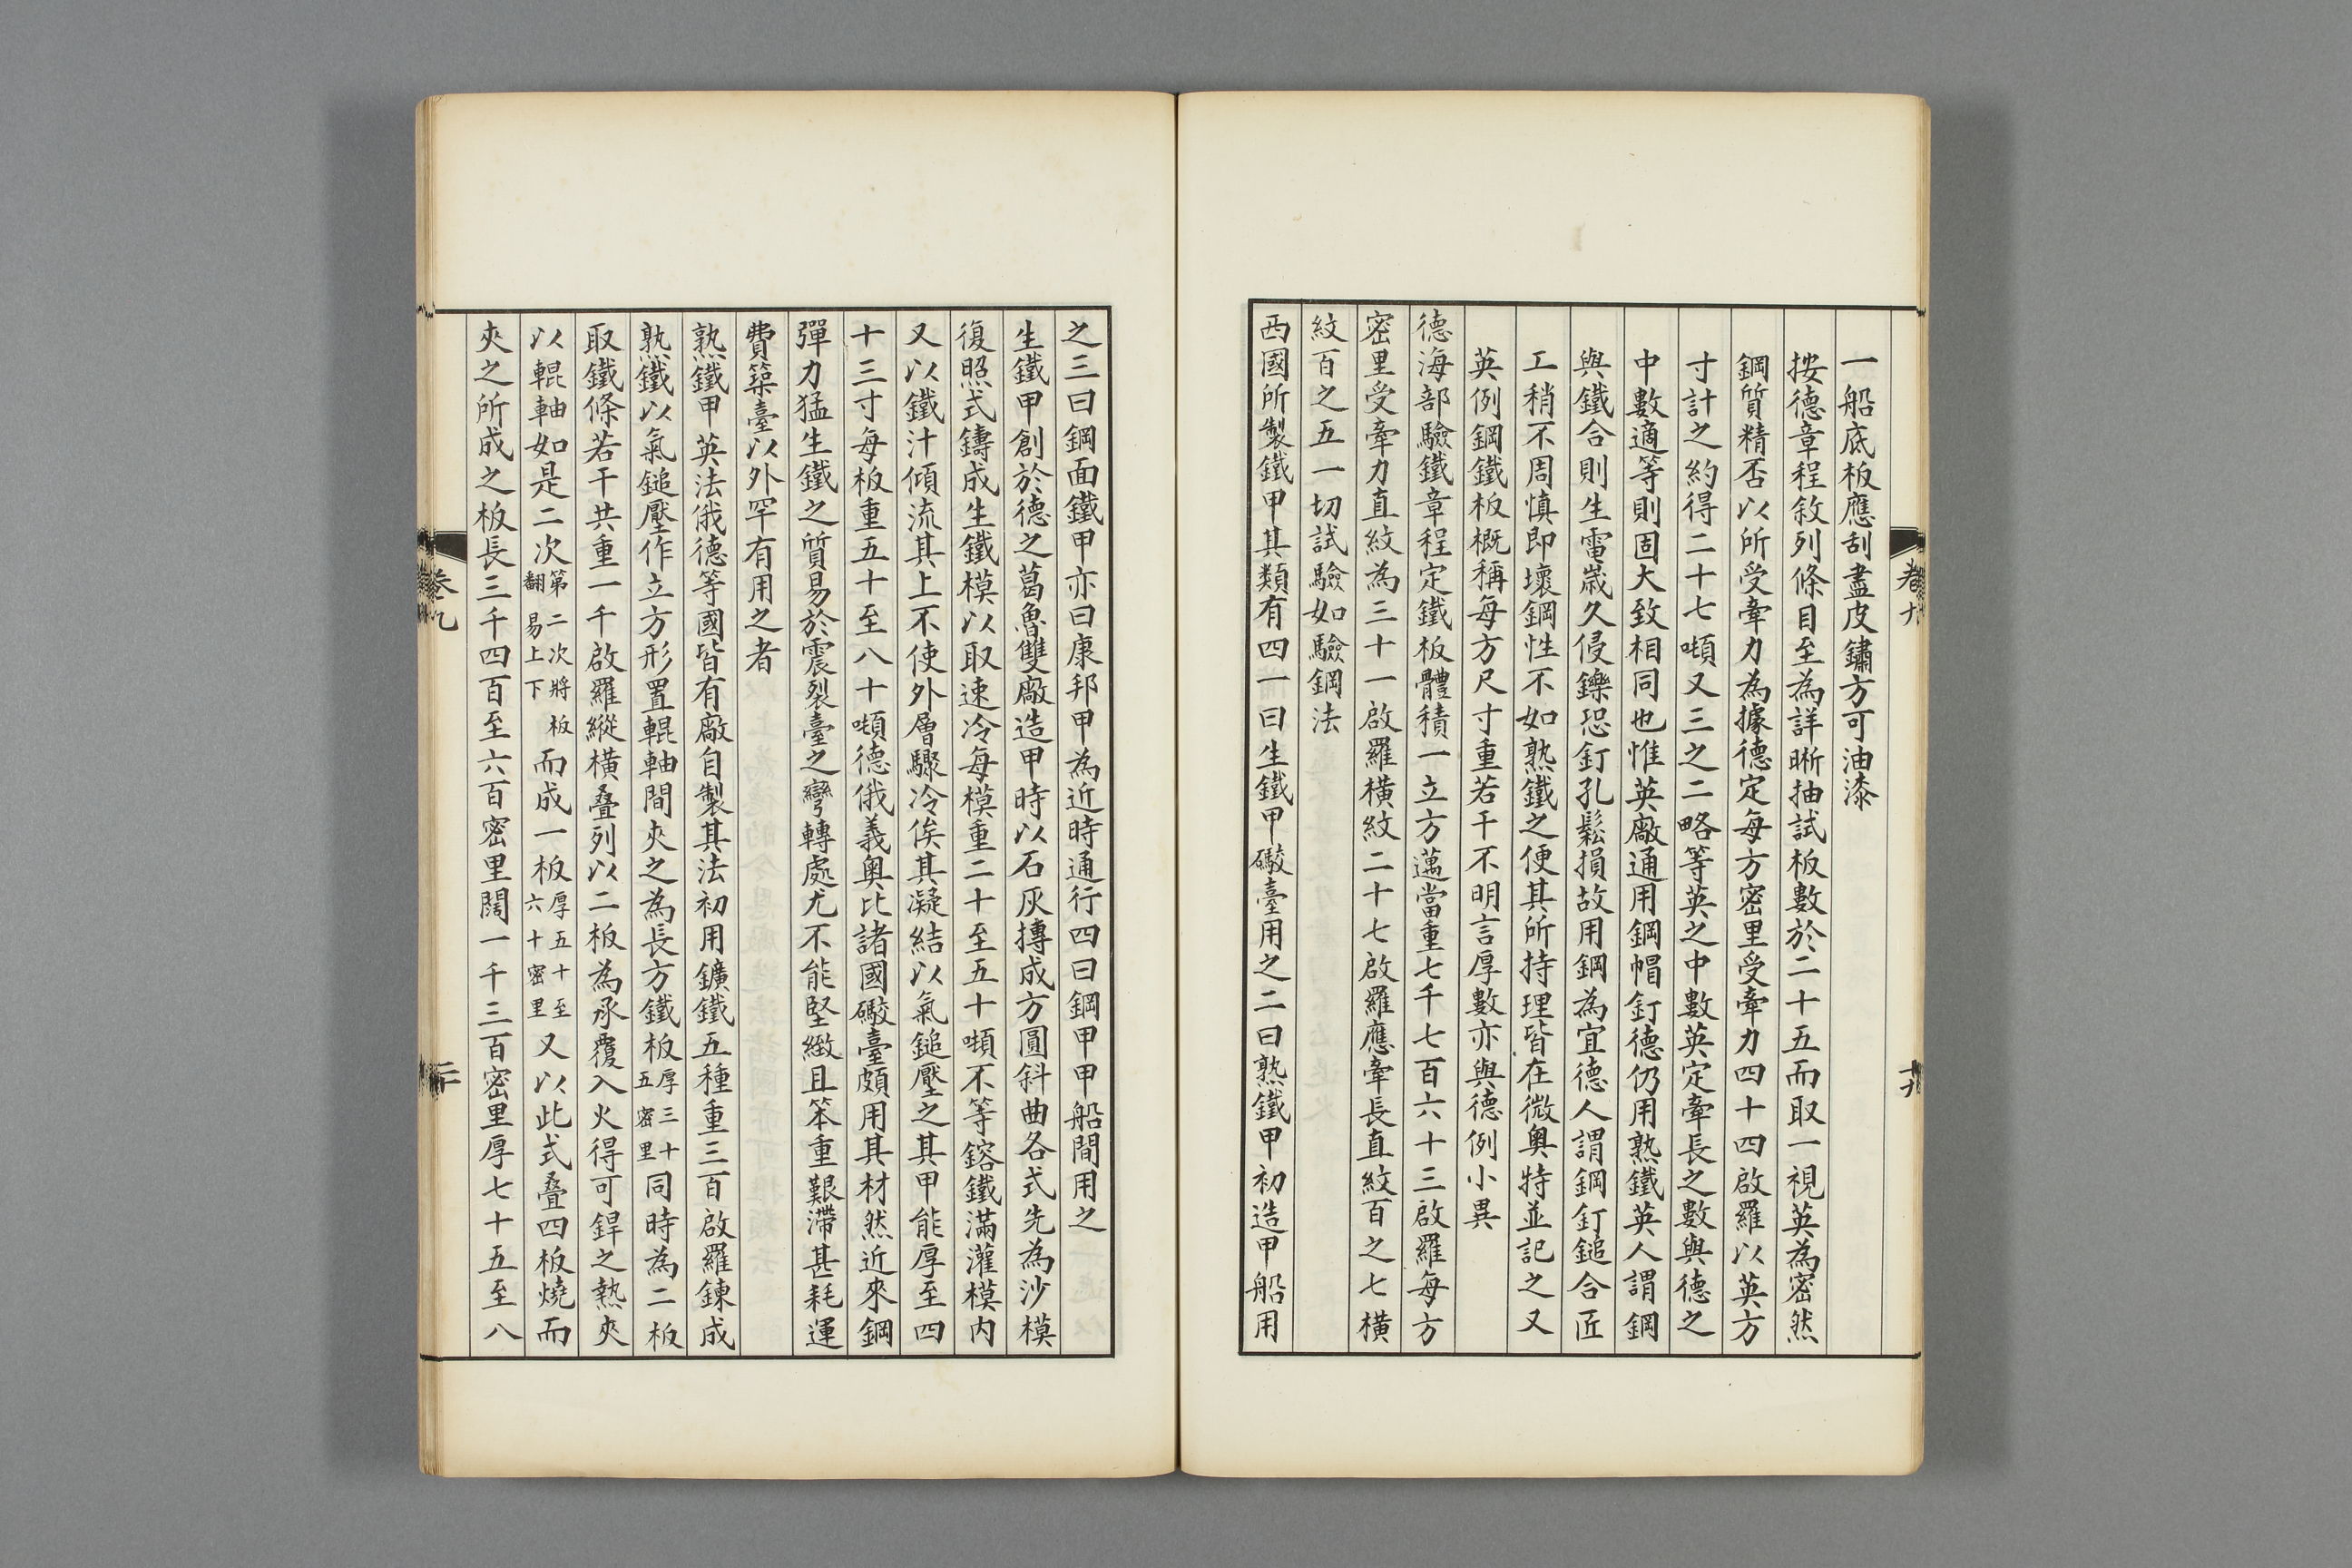 一船底板應刮盡皮鏽方可油漆
按德章程敘列條目至為詳晰抽試板數於二十五而取一視英為密然
鋼質精否以所受牽力為據德定每方密里受牽力四十四啟羅以英方
寸計之約得二十七噸又三之二略等英之中數英定牽長之數與德之
中數適等則固大致相同也惟英廠通用鋼帽釘德仍用熟鐵英人謂鋼
與鐵合則生電歲久侵鑠恐釘孔鬆損故用鋼為宜德人謂鋼釘鎚合匠
工稍不周慎即壞鋼性不如熟鐵之便其所持理皆在微奧特並記之又
英例鋼鐵板概稱每方尺寸重若干不明言厚數亦與德例小異
德海部驗鐵章程定鐵板體積一立方邁當重七千七百六十三啟羅每方
密里受牽力直紋為三十一啟羅橫紋二十七啟羅應牽長直紋百之七橫
紋百之五一切試驗如驗鋼法
西國所製鐵甲其類有四一曰生鐵甲礮臺用之二曰熟鐵甲初造甲船用
卷九
十九
之三曰鋼面鐵甲亦曰康邦甲為近時通行四曰鋼甲甲船間用之
生鐵甲創於德之葛魯雙廠造甲時以石灰摶成方圓斜曲各式先為沙模
復照式鑄成生鐵模以取速冷每模重二十至五十噸不等鎔鐵滿灌模内
又以鐵汁傾流其上不使外層驟冷俟其凝結以氣鎚壓之其甲能厚至四
十三寸每板重五十至八十噸德俄義奧比諸國礮臺頗用其材然近來鋼
彈力猛生鐵之質易於震裂臺之彎轉處尤不能堅緻且笨重艱滯甚耗運
費築臺以外罕有用之者
熟鐵甲英法俄德等國皆有廠自製其法初用鑛鐵五種重三百啟羅鍊成
熟鐵以氣鎚壓作立方形置輥軸間夾之為長方鐵板厚三十五密里同時為二板
取鐵條若干共重一千啟羅縱橫叠列以二板為承覆入火得可銲之熱夾
以輥軸如是二次第二次將板翻易上下而成一板厚五十至六十密里又以此式叠四板燒而
夾之所成之板長三千四百至六百密里闊一千三百密里厚七十五至八
卷九
二十